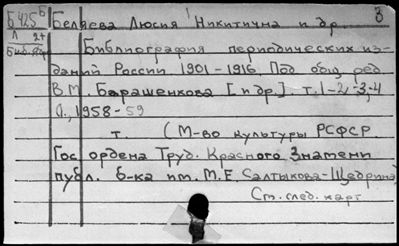 Б 425 Б Беляева Люсия Никитична и др. З
Л 2+
Библиография периодических из-
даний России 1901-1916. Под общ. ред.
В.М. Барашенкова [и др.] т. 1-2,-3,-4
Л., 1958-59
т. (М-во культуры РСФСР.
Гос. ордена Труд. Красного Знамени
публ. б-ка им. М.Е. Салтыкова-Щедрина)
См. след. карт